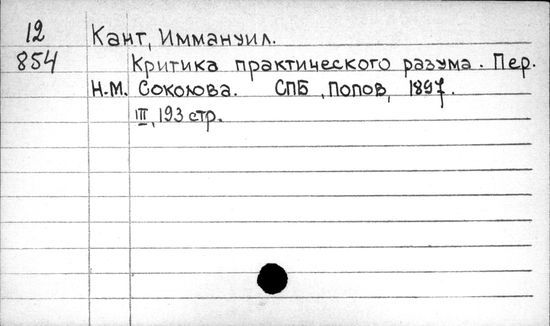 12 Кант, Иммануил.
854 Критика практического разума. Пер.
Н.М. Соколова. СПБ, Попов, 1897.
III, 193 стр.